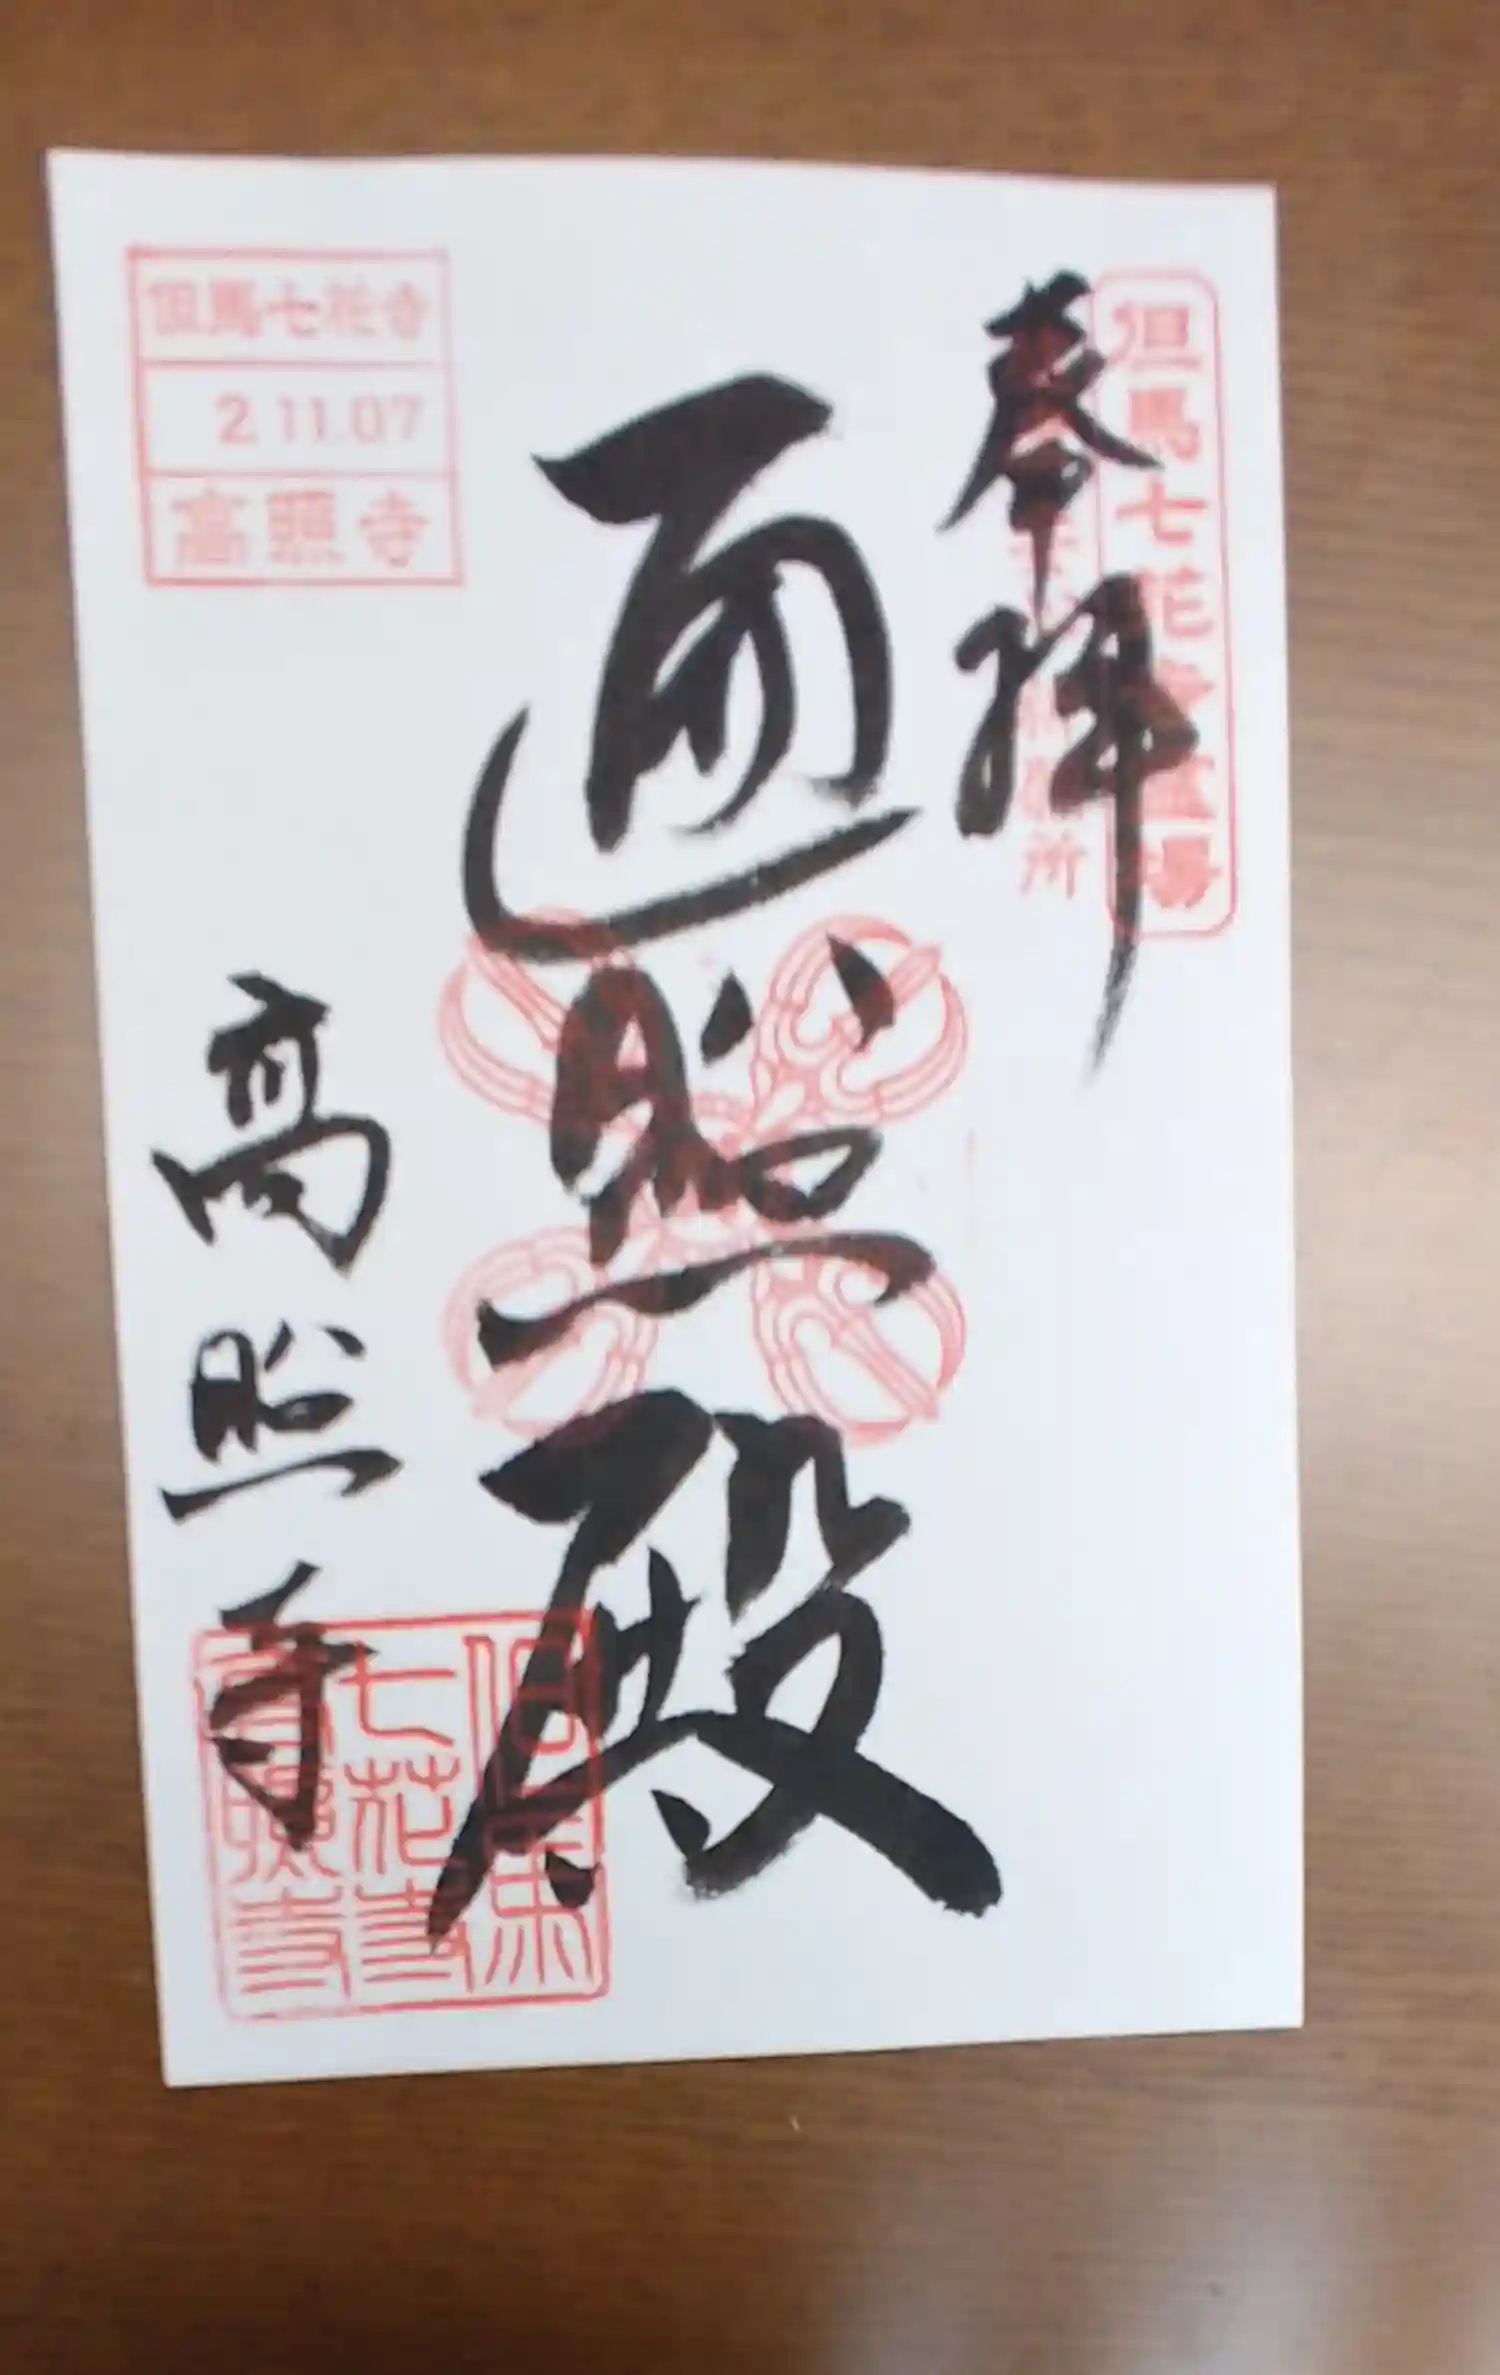 但馬七花寺霊場
奉拝
所
遍照殿
但馬七花寺
2.11.07
高照寺
高照寺
但馬
七花寺
高照寺